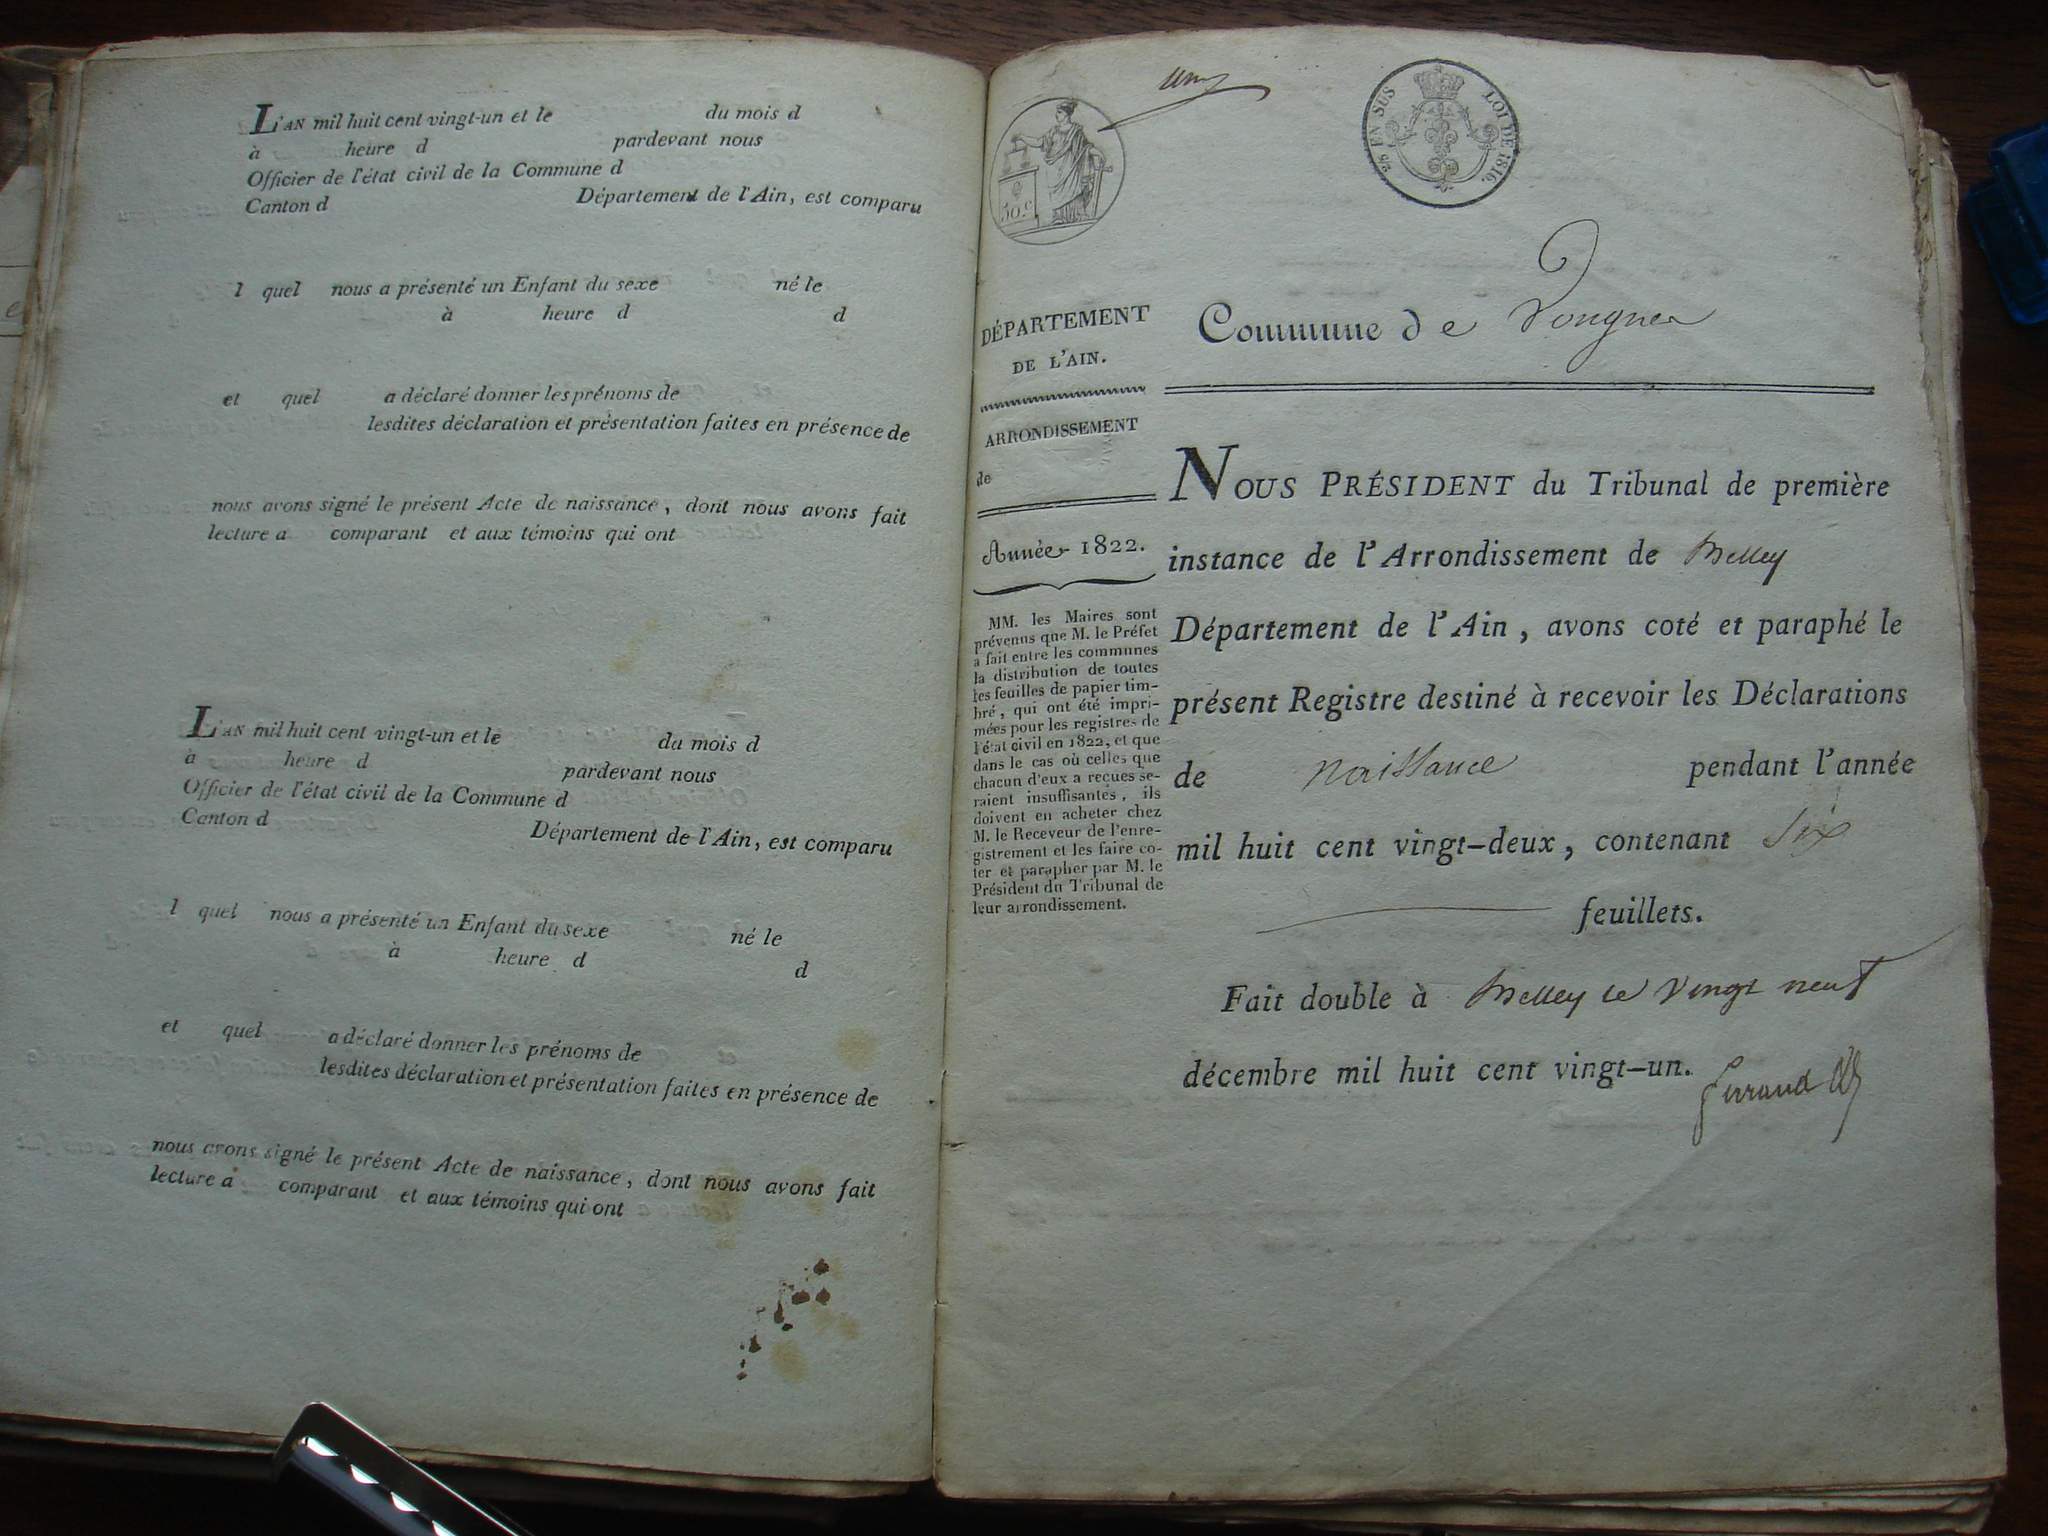 L'AN mil huit cent vingt-un et le du mois d
à heure d pardevant nous
Officier de l'état civil de la Commune d
Canton d Département de l'Ain, est comparu
l quel nous a présenté un Enfant du sexe né le
à heure d d
et quel a déclaré donner les prénoms de
lesdites déclaration et présentation faites en présence de
nous avons signé le présent Acte de naissance, dont nous avons fait
lecture a comparant et aux témoins qui ont
L'AN mil huit cent vingt-un et le du mois d
à heure d pardevant nous
Officier de l'état civil de la Commune d
Canton d Département de l'Ain, est comparu
l quel nous a présenté un Enfant du sexe né le
à heure d d
et quel a déclaré donner les prénoms de
lesdites déclaration et présentation faites en présence de
nous avons signé le présent Acte de naissance, dont nous avons fait
lecture a comparant et aux témoins qui ont
50 c
EN SUS LOI DE 1816.
DÉPARTEMENT
DE L'AIN.
ARRONDISSEMENT
de
Année 1822.
MM. les Maires sont
prévenus que M. le Préfet
a fait entre les communes
la distribution de toutes
les feuilles de papier tim-
bré, qui ont été impri-
mées pour les registres de
l'état civil en 1822, et que
dans le cas où celles que
chacun d'eux a reçues se-
raient insuffisantes, ils
doivent en acheter chez
M. le Receveur de l'enre-
gistrement et les faire co-
ter et parapher par M. le
Président du Tribunal de
leur arrondissement.
Commune de Vongnes
NOUS PRÉSIDENT du Tribunal de première
instance de l'Arrondissement de Belley
Département de l'Ain, avons coté et paraphé le
présent Registre destiné à recevoir les Déclarations
de naissance pendant l'année
mil huit cent vingt-deux, contenant six
feuillets.
Fait double à Belley le vingt neuf
décembre mil huit cent vingt-un.